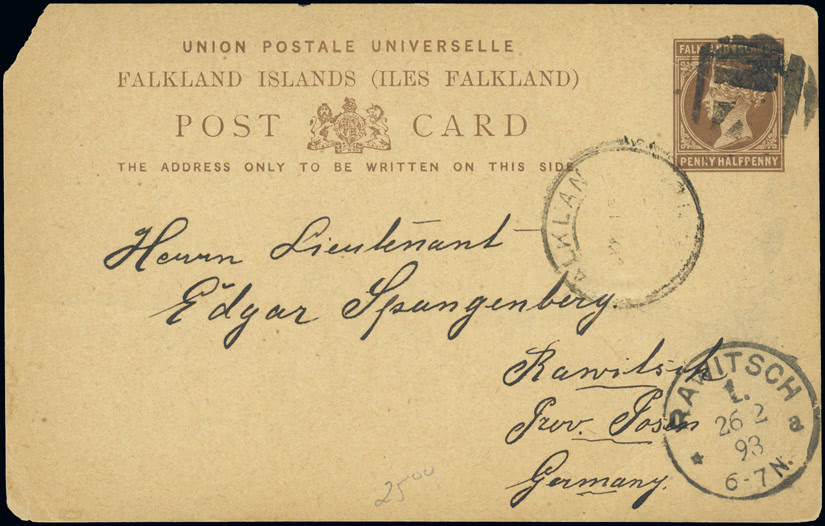 UNION POSTALE UNIVERSELLE
FALKLAND ISLANDS (ILES FALKLAND)
POST CARD
THE ADDRESS ONLY TO BE WRITTEN ON THIS SIDE.
FALKLAND ISLANDS
PENNY HALFPENNY
FALKLAN
Herrn Lieutenant
Edgar Spangenberg.
Rawitsch
Prov. Posen
Germany.
RAWITSCH
1.
26 2
93
a
6-7N.
2500